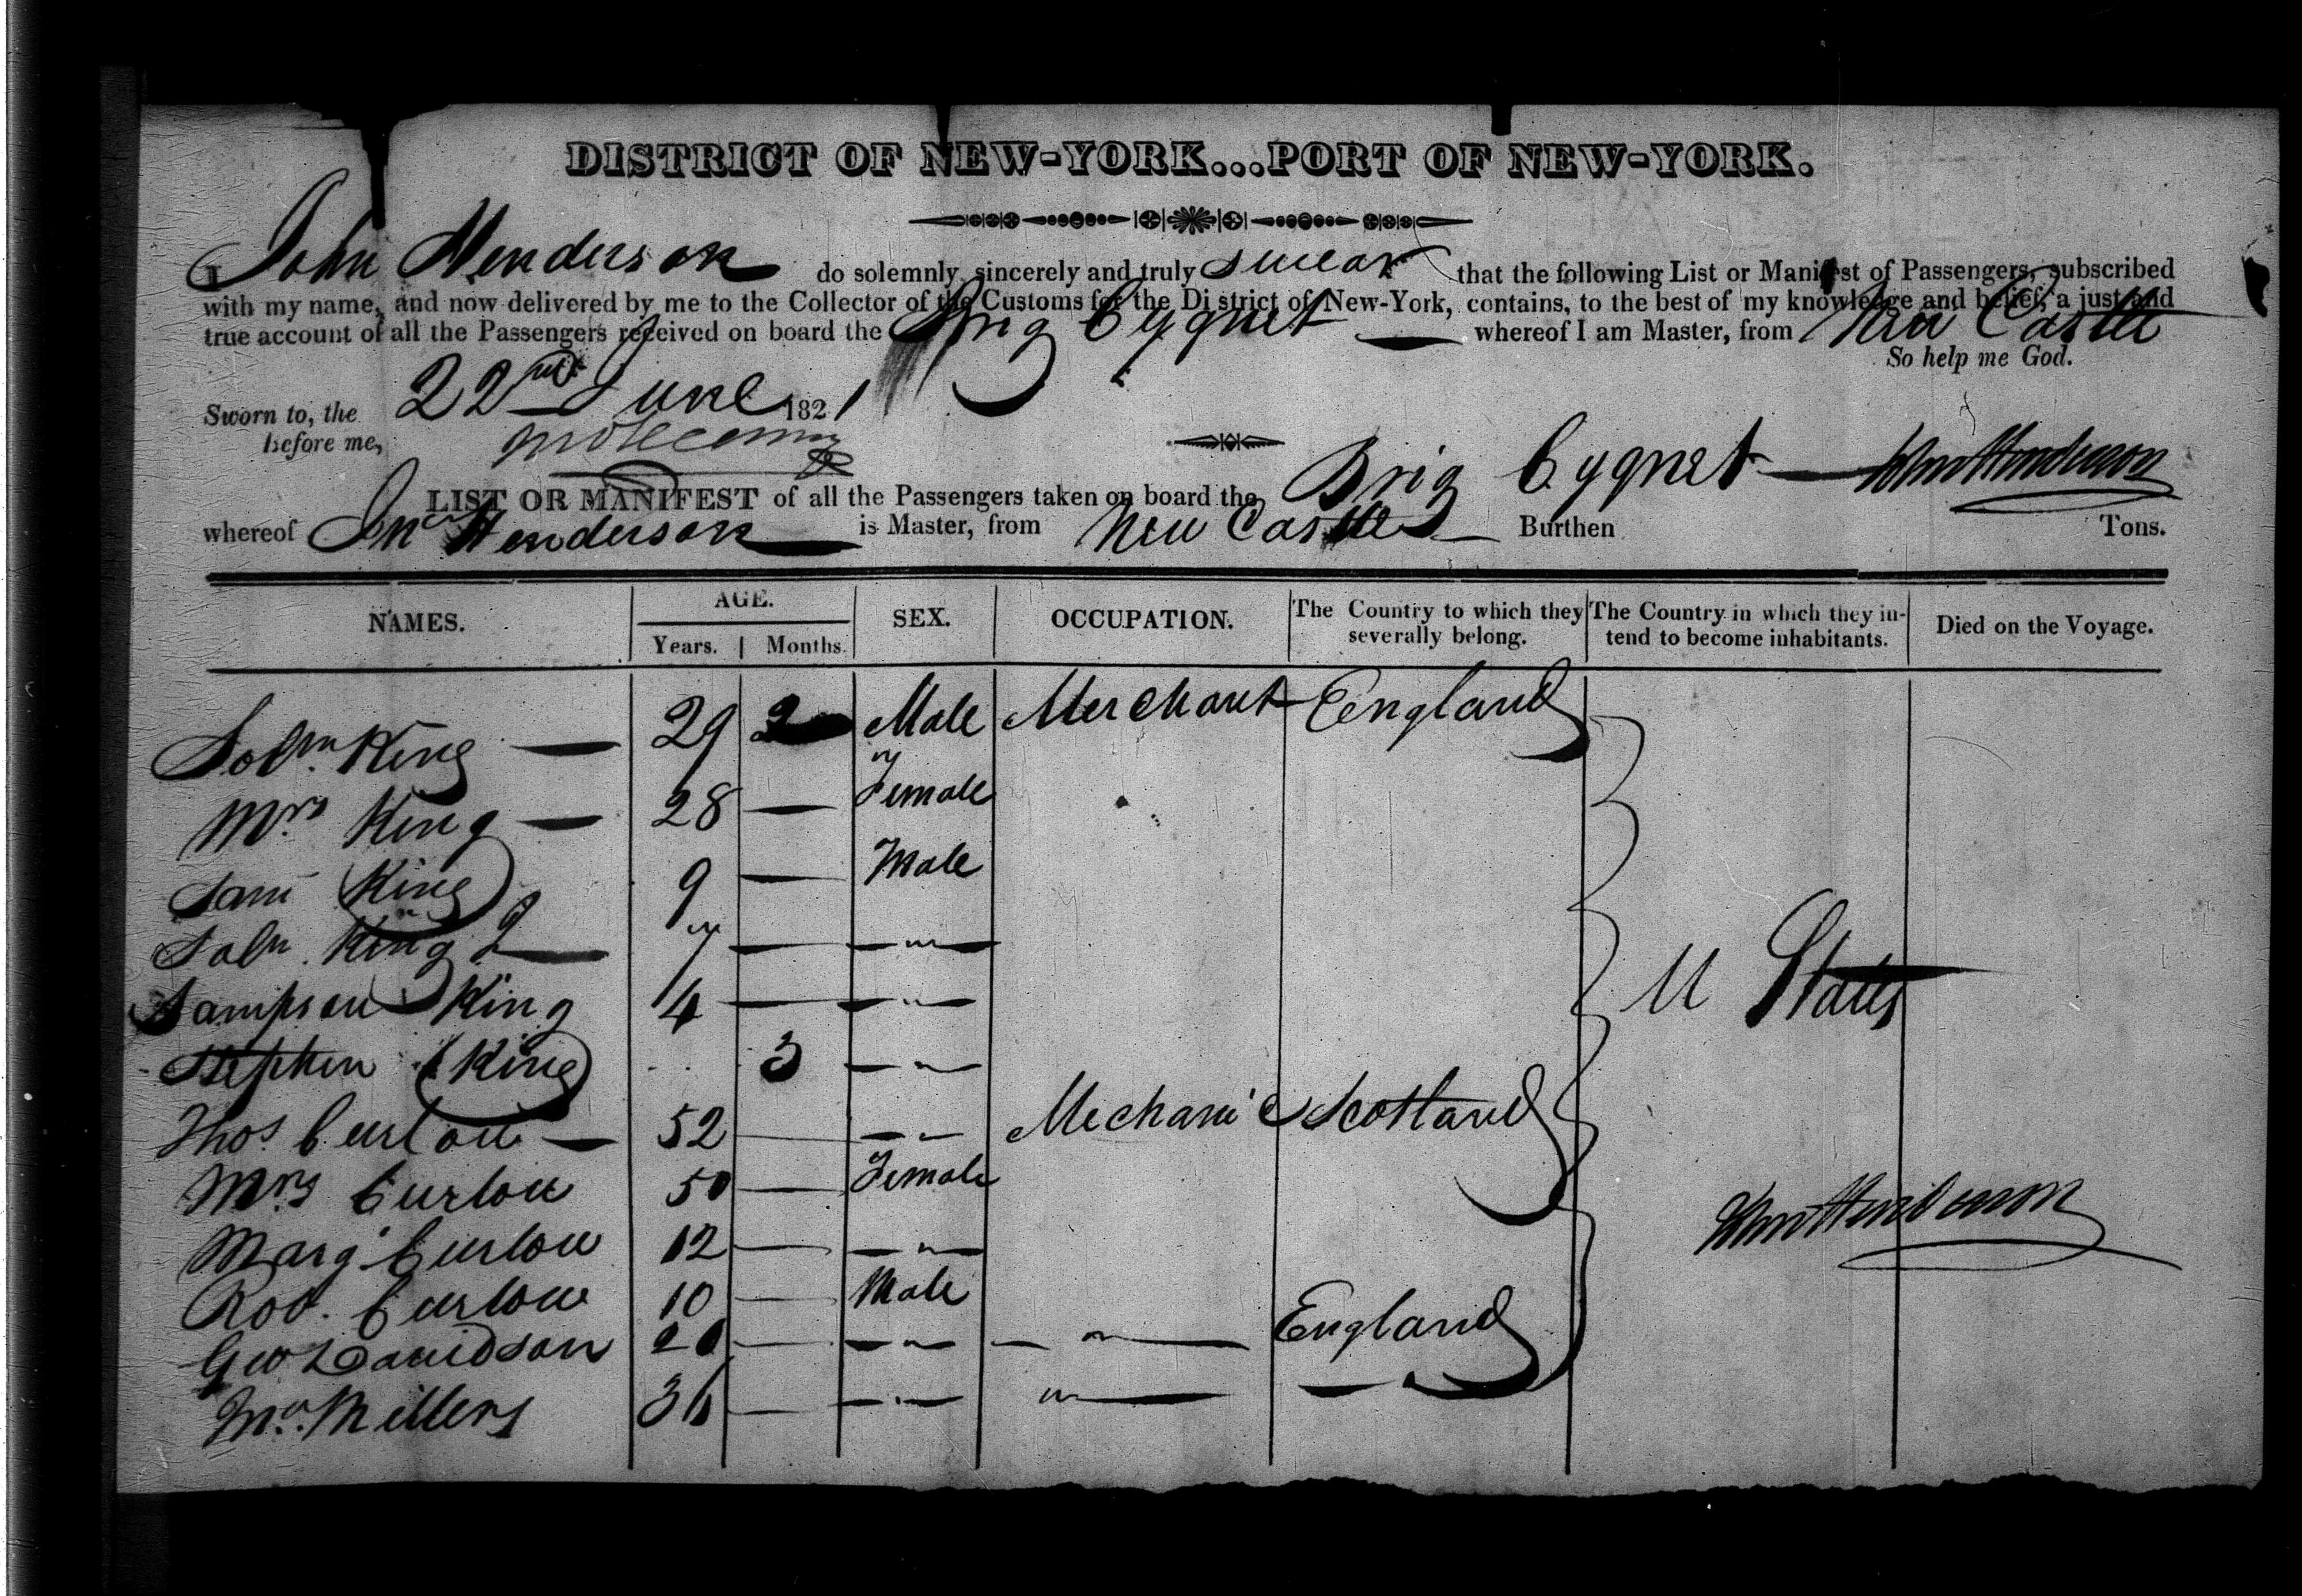 DISTRICT OF NEW-YORK...PORT OF NEW-YORK.
I John Henderson do solemnly, sincerely and truly swear that the following List or Manifest of Passengers, subscribed
with my name, and now delivered by me to the Collector of the Customs for the District of New-York, contains, to the best of my knowledge and belief, a just and
true account of all the Passengers received on board the Brig Cygnet whereof I am Master, from New Castle
So help me God.
Sworn to, the 22nd June 1821
before me,
LIST OR MANIFEST of all the Passengers taken on board the Brig Cygnet
whereof Jno Henderson is Master, from New Castle Burthen Tons.
NAMES. AGE. Years. Months. SEX. OCCUPATION. The Country to which they severally belong. The Country in which they intend to become inhabitants. Died on the Voyage.
Solm. King 29 2 Male Merchant England
Mrs King 28 — Female
Saml King 9 — Male
Soln. King 2 7 — — " —
Sampson King 4 — — " — U States
Stephen King 3 — " —
Thos Curlow 52 — — " — Mechanic Scotland
Mrs Curlow 50 — Female
Marg Curlow 12 — — " —
Rob. Curlow 10 — Male
Geo Davidson 20 — — " — — " — England
Mr. Millers 36 — — " — " — — " —